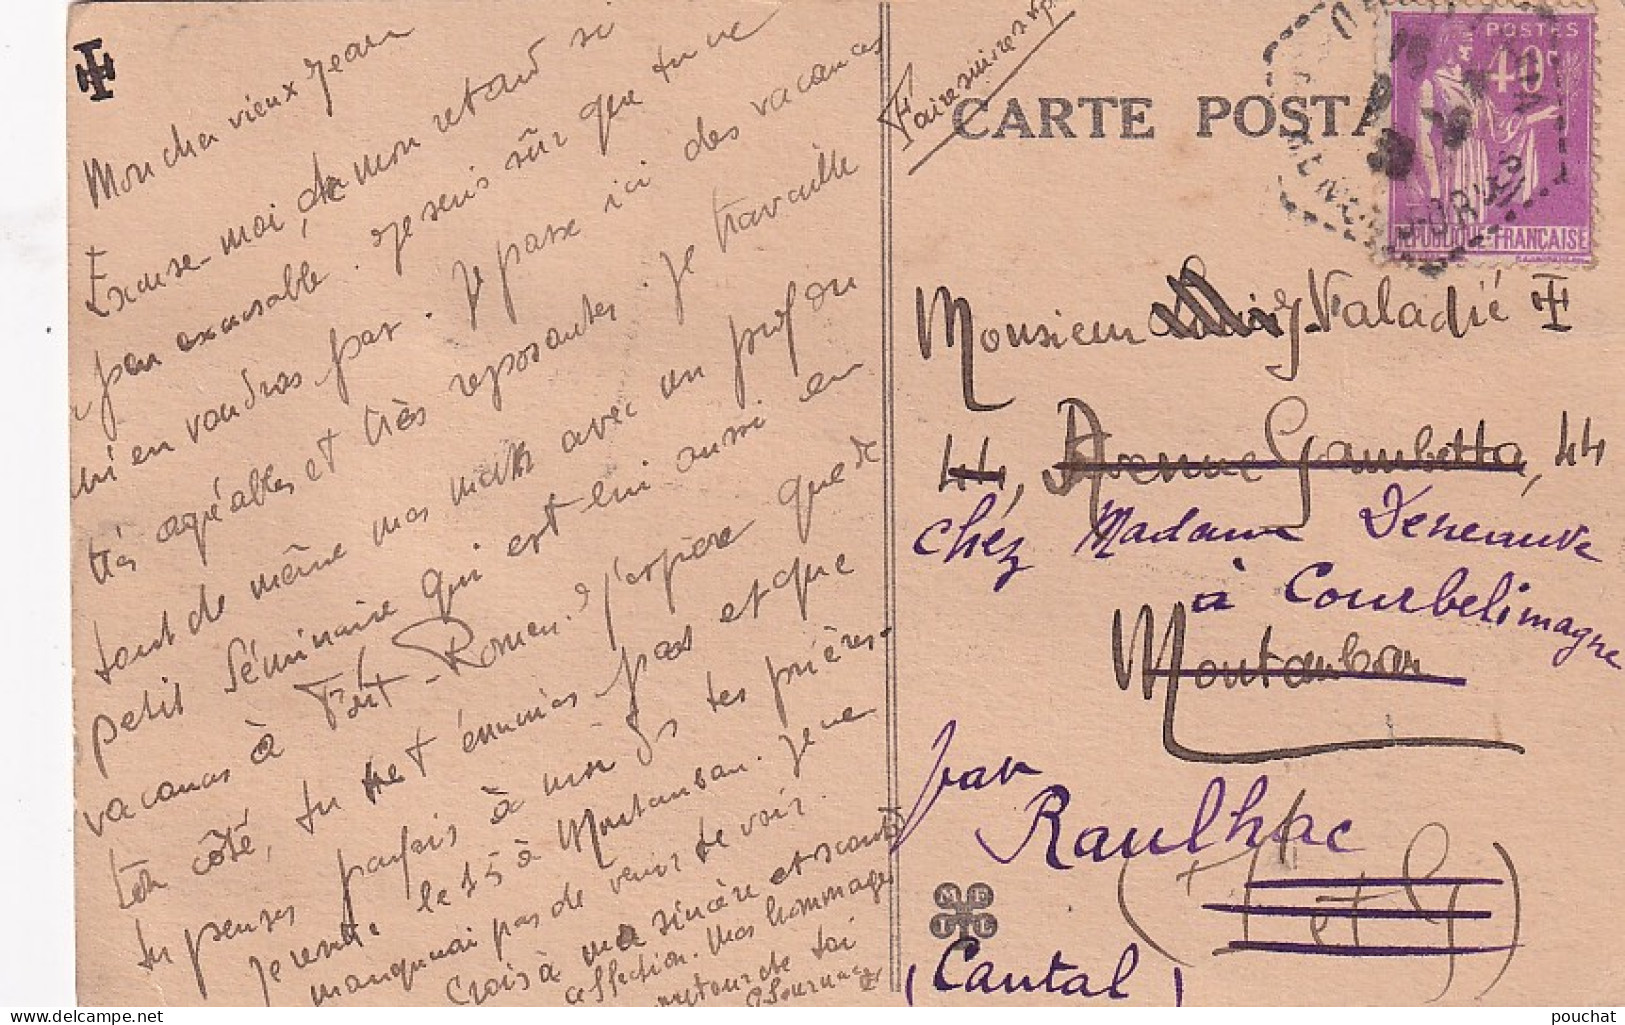 Mon cher vieux Jean
Excuse-moi, de mon retard si
peu excusable. Je suis sûr que tu ne
m'en voudras pas. Je passe ici des vacances
très agréables et très reposantes. Je travaille
tout de même mes math avec un prof du
petit Séminaire qui est lui aussi en
vacances à Font-Romeu. J'espère que de
ton côté, tu ne t'ennuies pas et que
tu penses parfois à moi ds tes prières.
Je rentre le 15 à Montauban. Je ne
manquerai pas de venir te voir.
Crois à ma sincère et scoute
affection. Mes hommages
autour de toi
Faire suivre svp.
CARTE POSTA
POSTES
40c
REPUBLIQUE-FRANÇAISE
Monsieur J. Valadié
44, Avenue Gambetta, 44
chez Madame Deneauve
à Courbelimagne
Montauban
par
Raulhac
(T et G)
(Cantal)
pouchat